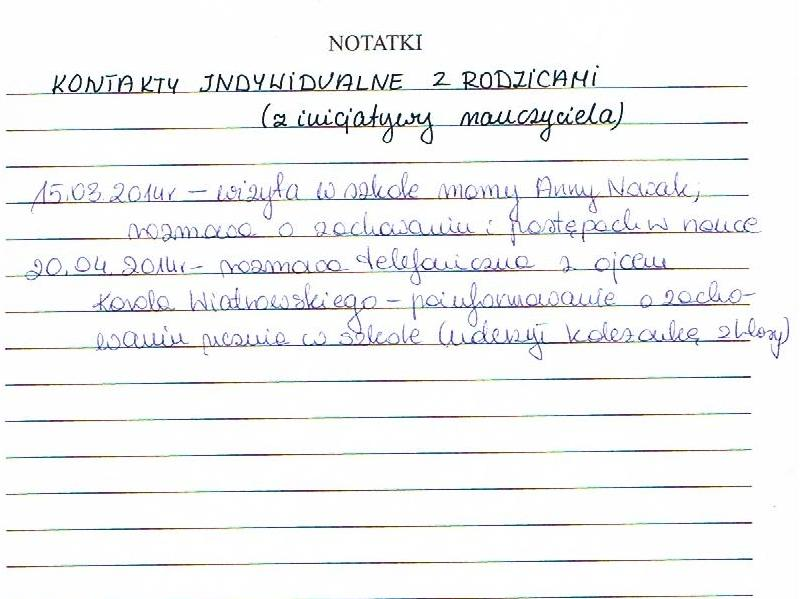 NOTATKI
KONTAKTY INDYWIDUALNE Z RODZICAMI
(z inicjatywy nauczyciela)
15.03.2014r – wizyta w szkole mamy Anny Nowak;
rozmowa o zachowaniu i postępach w nauce
20.04.2014r – rozmowa telefoniczna z ojcem
Karola Wiatrowskiego – poinformowanie o zacho-
waniu ucznia w szkole (uderzył koleżankę z klasy)